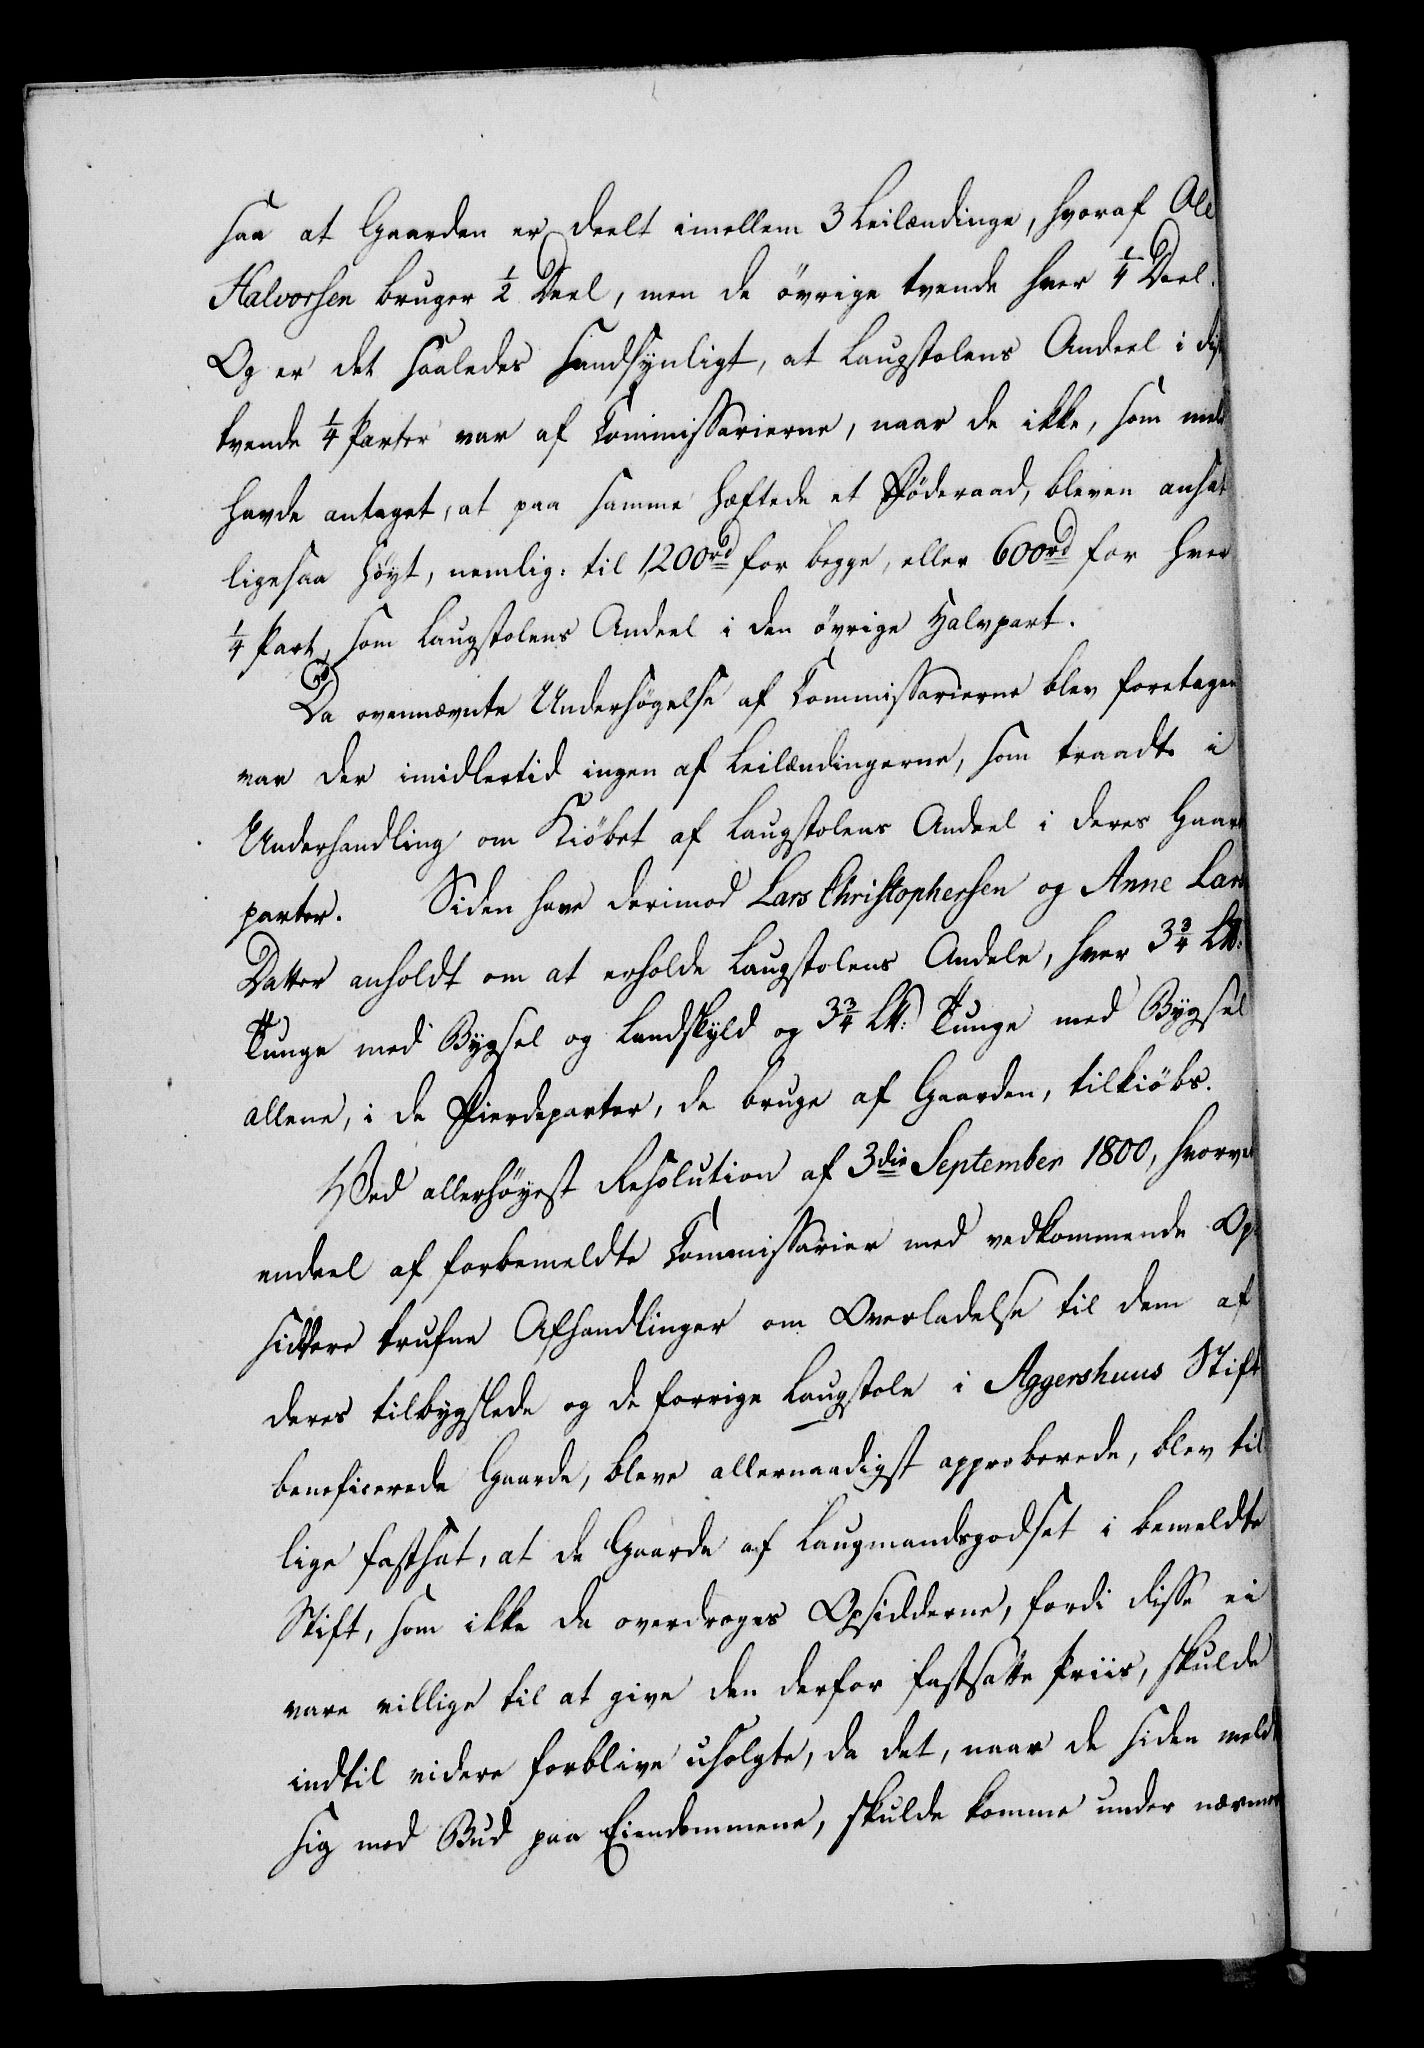 saa at Gaarden er deelt imellem 3 Leilændinge, hvoraf Ole
Halvorsen bruger ½ Deel, men de övrige tvende hver ¼ Deel.
Og er det saaledes sandsynligt, at Laugstolens Andeel i
tvende ¼ Parter var af Commissarierne, naar de ikke, som
havde antaget, at paa samme hæftede et Föderaad, bleven ansat
ligesaa höyt, nemlig: til 1200rd for begge, eller 600rd for hver
¼ Part, som Laugstolens Andeel i den övrige Halvpart.
Da ovennævnte Undersögelse af Commissarierne blev foretagen
var der imidlertid ingen af Leilændingerne, som traadte i
Underhandling om Kiöbet af Laugstolens Andeel i deres Gaard
parter. Siden have derimod Lars Christophersen og Anne Lars
Datter anholdt om at erholde Laugstolens Andele, hver 3¾ L℔:
Tunge med Bygsel og Landskyld og 3¾ L℔: Tunge med Bygsel
allene, i de Fierdeparter, de bruge af Gaarden, tilkiöbs.
Ved allerhöyest Resolution af 3die September 1800, hvorved
endeel af forbemeldte Commissarier med vedkommende Op
siddere trufne Afhandlinger om Overladelse til dem af
deres tilbygslede og de forrige Laugstole i Aggershuus Stift
beneficerede Gaarde, bleve allernaadigst approberede, blev til
lige fastsat, at de Gaarde af Laugmandsgodset i bemeldte
Stift, som ikke da overdroges Opsidderne, fordi disse ei
vare villige til at give den derfor fastsatte Priis, skulde
indtil videre forblive usolgte, da det, naar de siden meldte
sig med Bud paa Eiendommene, skulde komme under nærmere